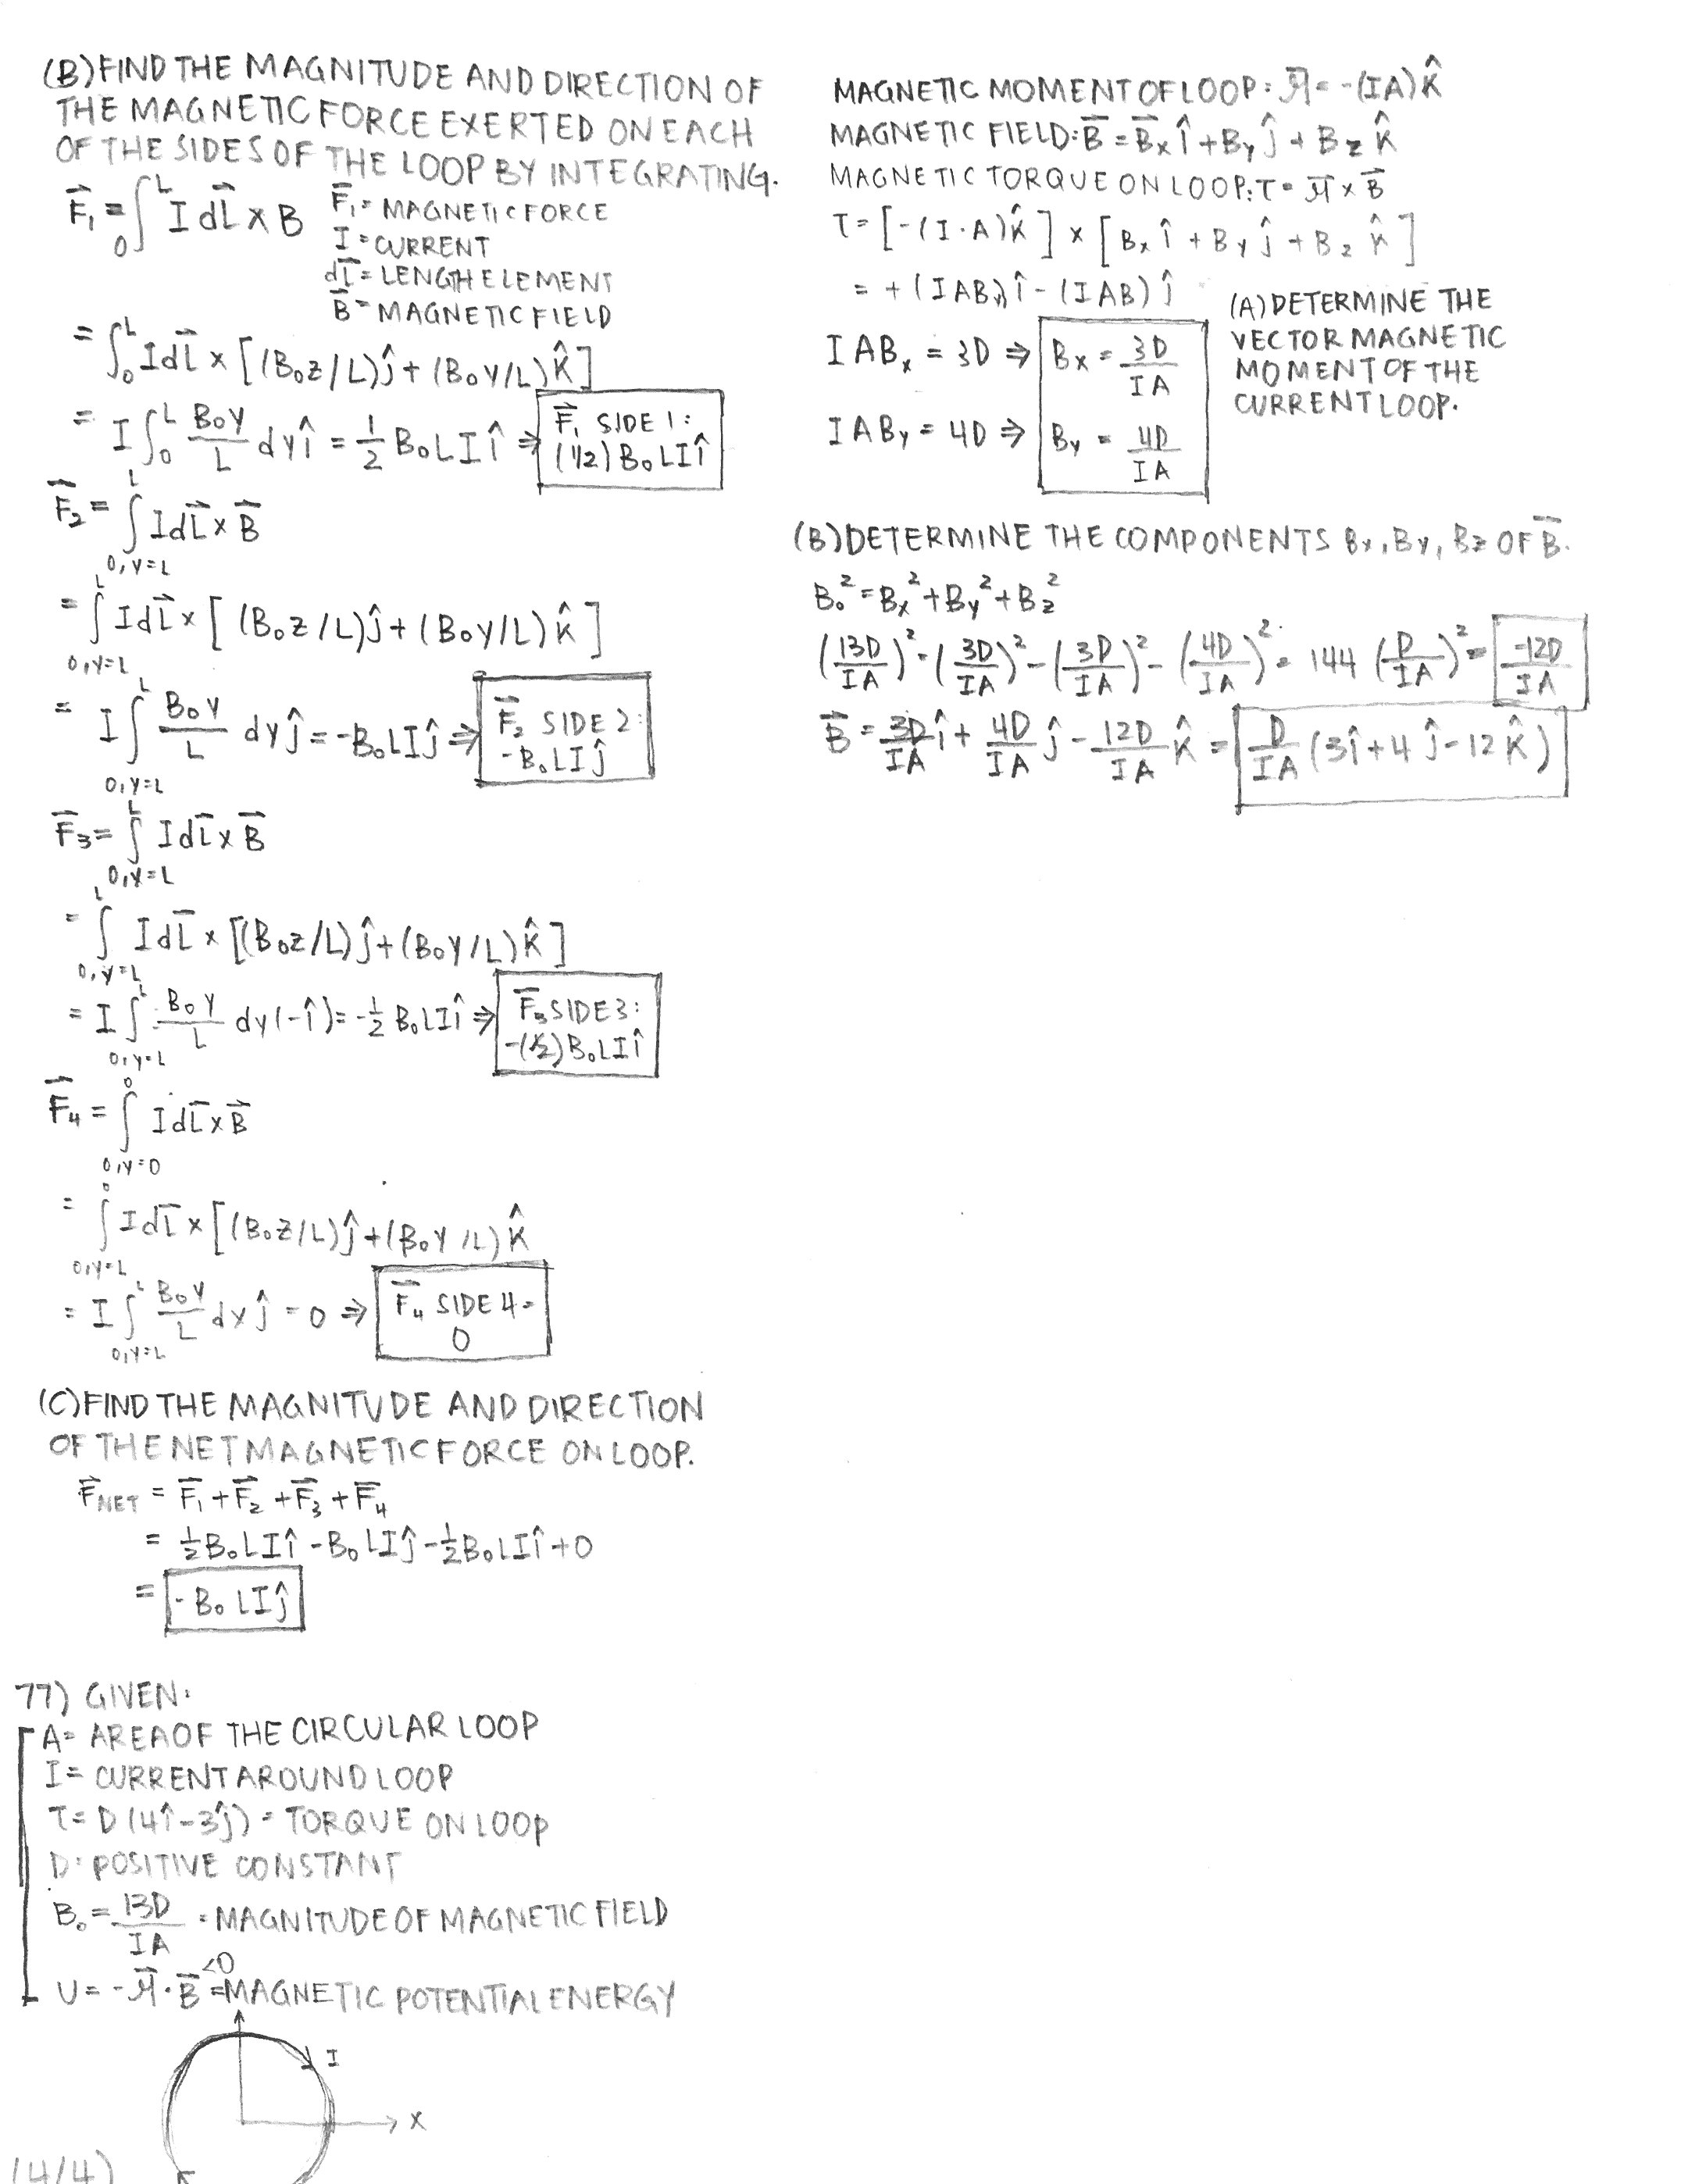 (B) FIND THE MAGNITUDE AND DIRECTION OF
THE MAGNETIC FORCE EXERTED ON EACH
OF THE SIDES OF THE LOOP BY INTEGRATING.
F⃗₁ = ∫₀ᴸ I dL⃗ × B
F⃗₁ = MAGNETIC FORCE
I = CURRENT
dL⃗ = LENGTH ELEMENT
B⃗ = MAGNETIC FIELD
= ∫₀ᴸ I dL⃗ × [(B₀z/L)ĵ + (B₀y/L)k̂]
= I ∫₀ᴸ B₀y/L dy î = 1/2 B₀LI î ⇒ F⃗₁ SIDE 1:
(1/2) B₀LI î
F⃗₂ = ∫_{0,y=L}^{L} I dL⃗ × B⃗
= ∫_{0,y=L}^{L} I dL⃗ × [(B₀z/L)ĵ + (B₀y/L)k̂]
= I ∫_{0,y=L}^{L} B₀y/L dy ĵ = -B₀LI ĵ ⇒ F⃗₂ SIDE 2:
-B₀LI ĵ
F⃗₃ = ∫_{0,y=L}^{L} I dL⃗ × B⃗
= ∫_{0,y=L}^{L} I dL⃗ × [(B₀z/L)ĵ + (B₀y/L)k̂]
= I ∫_{0,y=L}^{L} B₀y/L dy (-î) = -1/2 B₀LI î ⇒ F⃗₃ SIDE 3:
-(1/2) B₀LI î
F⃗₄ = ∫_{0,y=0}^{0} I dL⃗ × B⃗
= ∫_{0,y=L}^{0} I dL⃗ × [(B₀z/L)ĵ + (B₀y/L)k̂
= I ∫_{0,y=L}^{L} B₀y/L dx ĵ = 0 ⇒ F⃗₄ SIDE 4=
0
(C) FIND THE MAGNITUDE AND DIRECTION
OF THE NET MAGNETIC FORCE ON LOOP.
F⃗NET = F⃗₁ + F⃗₂ + F⃗₃ + F⃗₄
= 1/2 B₀LI î - B₀LI ĵ - 1/2 B₀LI î + 0
= -B₀LI ĵ
77) GIVEN:
A = AREA OF THE CIRCULAR LOOP
I = CURRENT AROUND LOOP
τ = D(4î - 3ĵ) = TORQUE ON LOOP
D: POSITIVE CONSTANT
B₀ = 13D/IA = MAGNITUDE OF MAGNETIC FIELD
U = -μ⃗ · B⃗ <0 = MAGNETIC POTENTIAL ENERGY
I
X
(4/4)
MAGNETIC MOMENT OF LOOP: μ⃗ = -(IA)k̂
MAGNETIC FIELD: B⃗ = B⃗x î + By ĵ + Bz k̂
MAGNETIC TORQUE ON LOOP: τ = μ⃗ × B⃗
τ = [-(I·A)k̂] × [Bx î + By ĵ + Bz k̂]
= +(IABy)î - (IAB)ĵ
IABx = 3D ⇒ Bx = 3D/IA
IABy = 4D ⇒ By = 4D/IA
(A) DETERMINE THE
VECTOR MAGNETIC
MOMENT OF THE
CURRENT LOOP.
(B) DETERMINE THE COMPONENTS Bx, By, Bz OF B⃗.
B₀² = Bx² + By² + Bz²
(13D/IA)² = (3D/IA)² - (3D/IA)² - (4D/IA)² = 144 (D/IA)² = -12D/IA
B⃗ = 3D/IA î + 4D/IA ĵ - 12D/IA k̂ = D/IA (3î + 4ĵ - 12k̂)